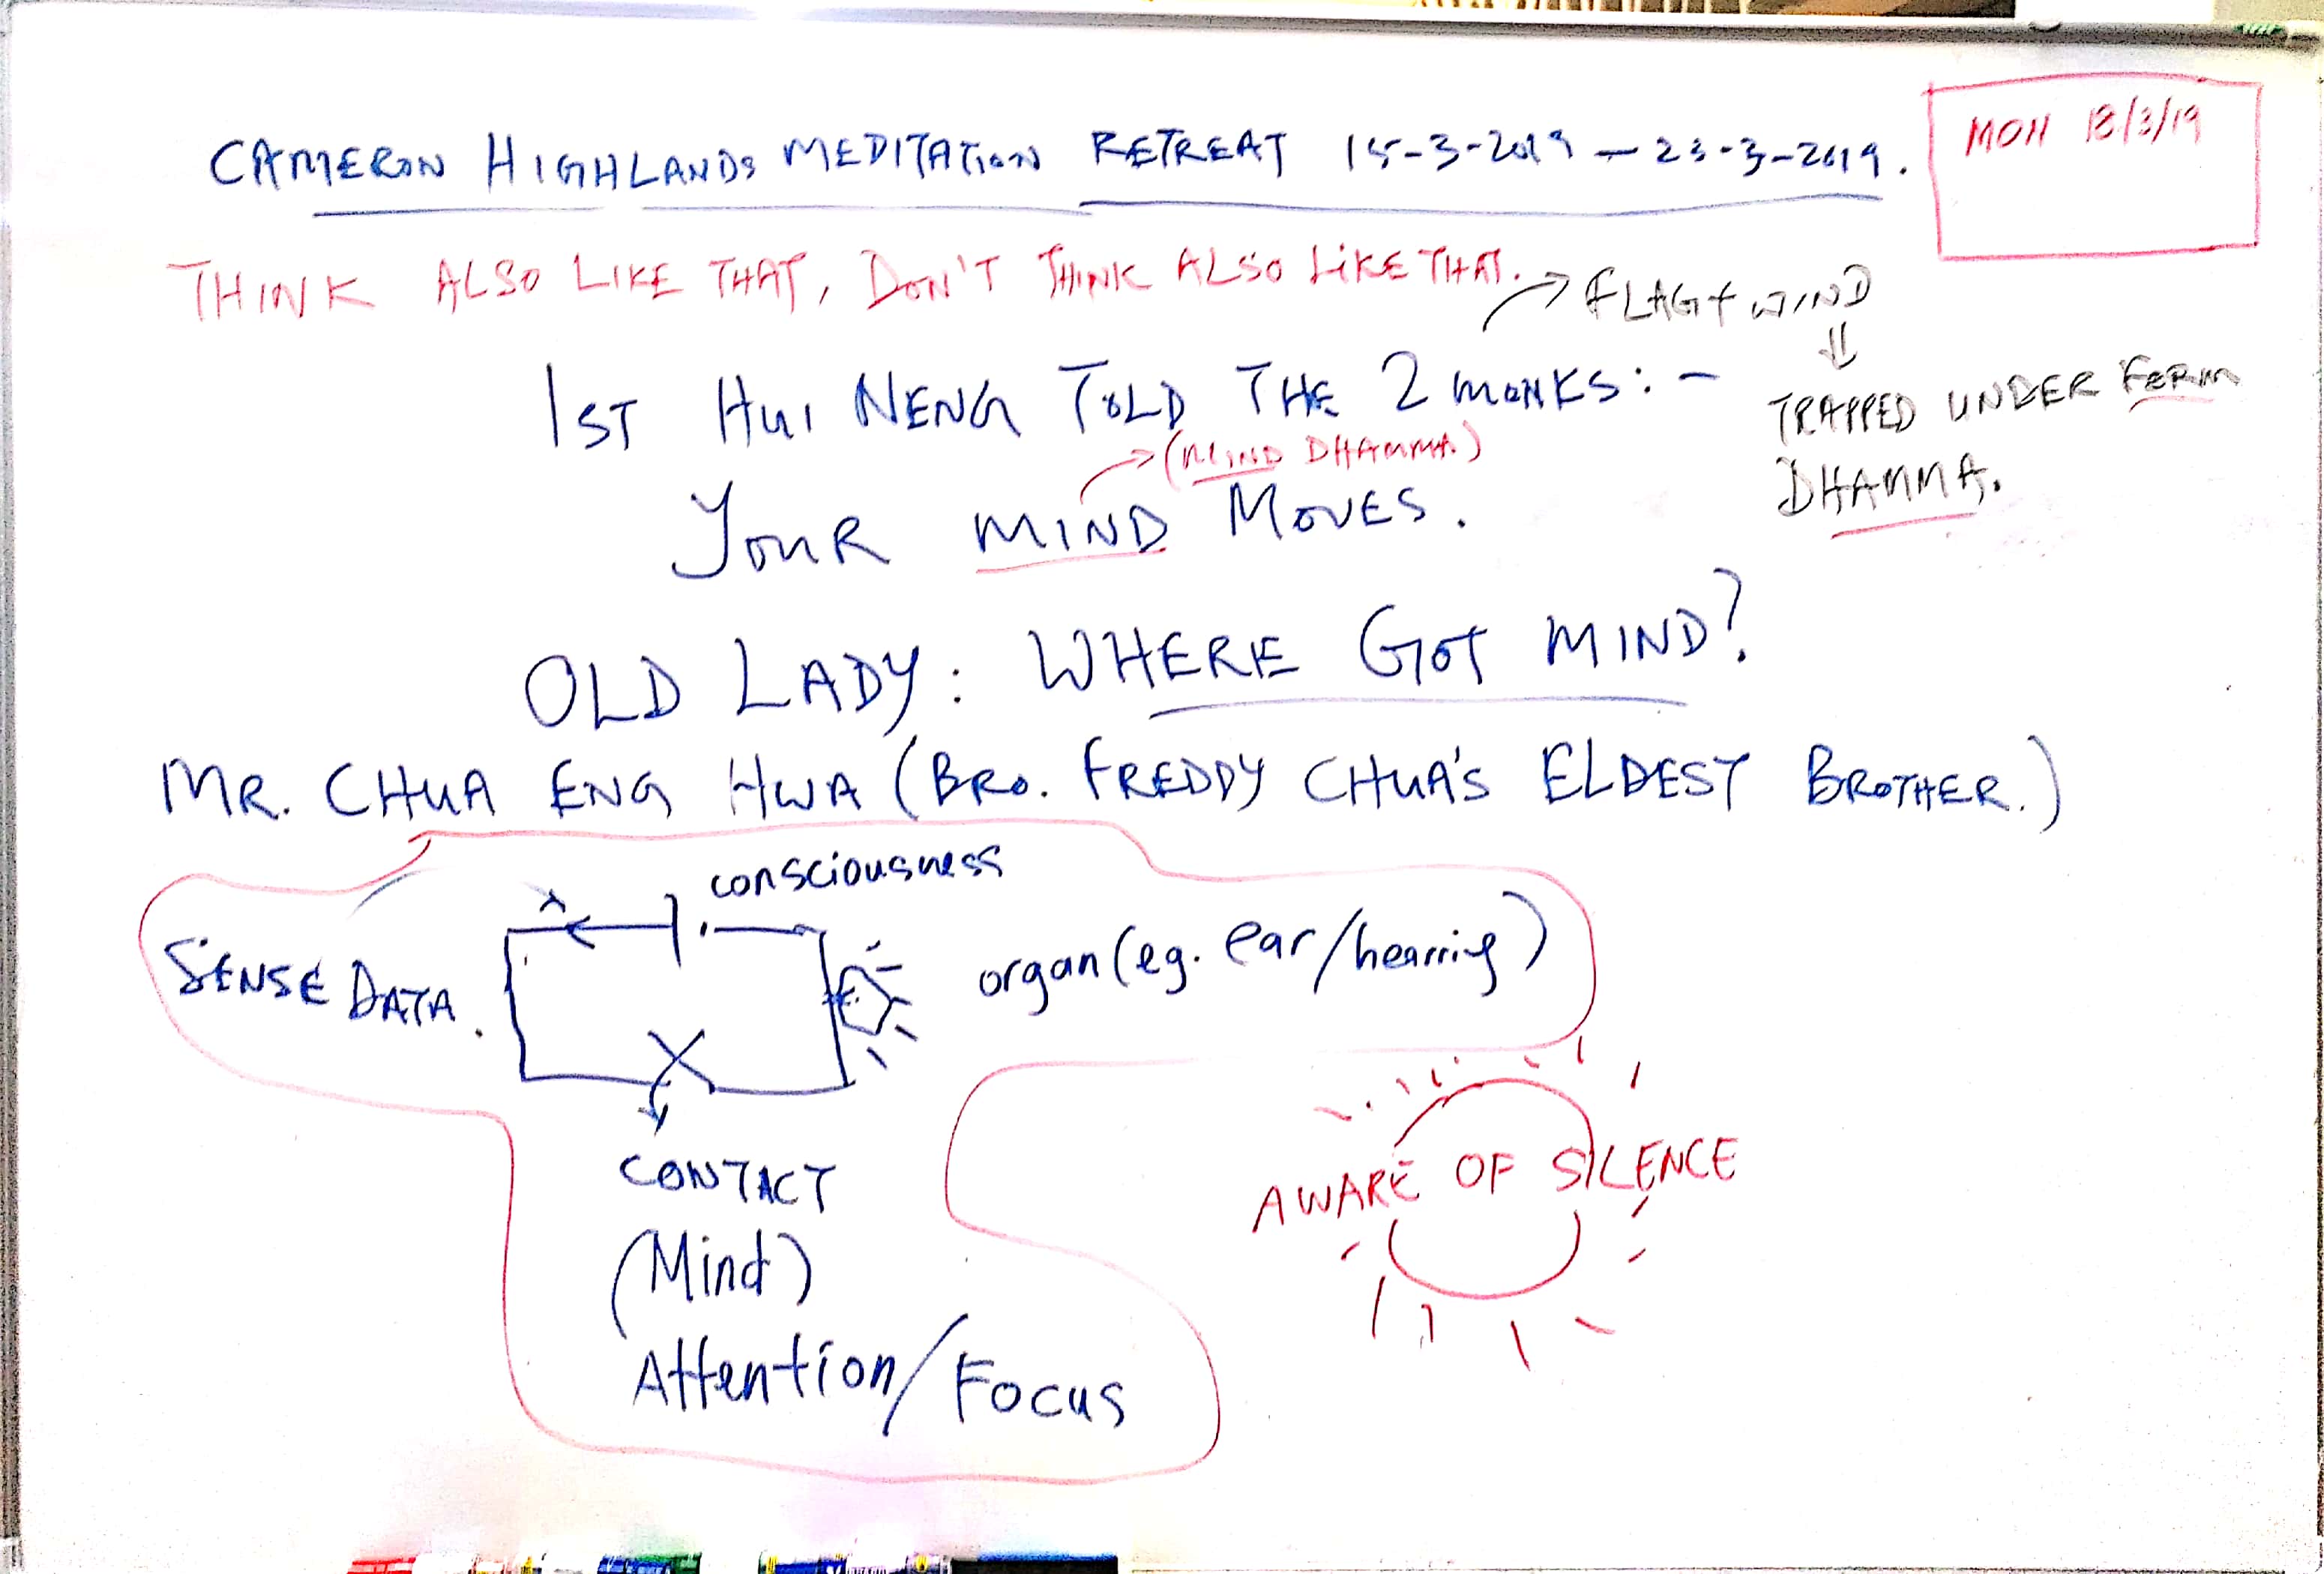 CAMERON HIGHLANDS MEDITATION RETREAT 15-3-2019 — 23-3-2019.
MON 18/3/19
THINK ALSO LIKE THAT, DON'T THINK ALSO LIKE THAT.
→ FLAG + WIND
⇓
1ST HUI NENG TOLD THE 2 MONKS: -
TRAPPED UNDER FORM
DHAMMA.
→ (MIND DHAMMA)
YOUR MIND MOVES.
OLD LADY: WHERE GOT MIND?
MR. CHUA ENG HWA (BRO. FREDDY CHUA'S ELDEST BROTHER.)
consciousness
SENSE DATA.
organ (eg. ear/hearring)
CONTACT
(Mind)
Attention/Focus
AWARE OF SILENCE